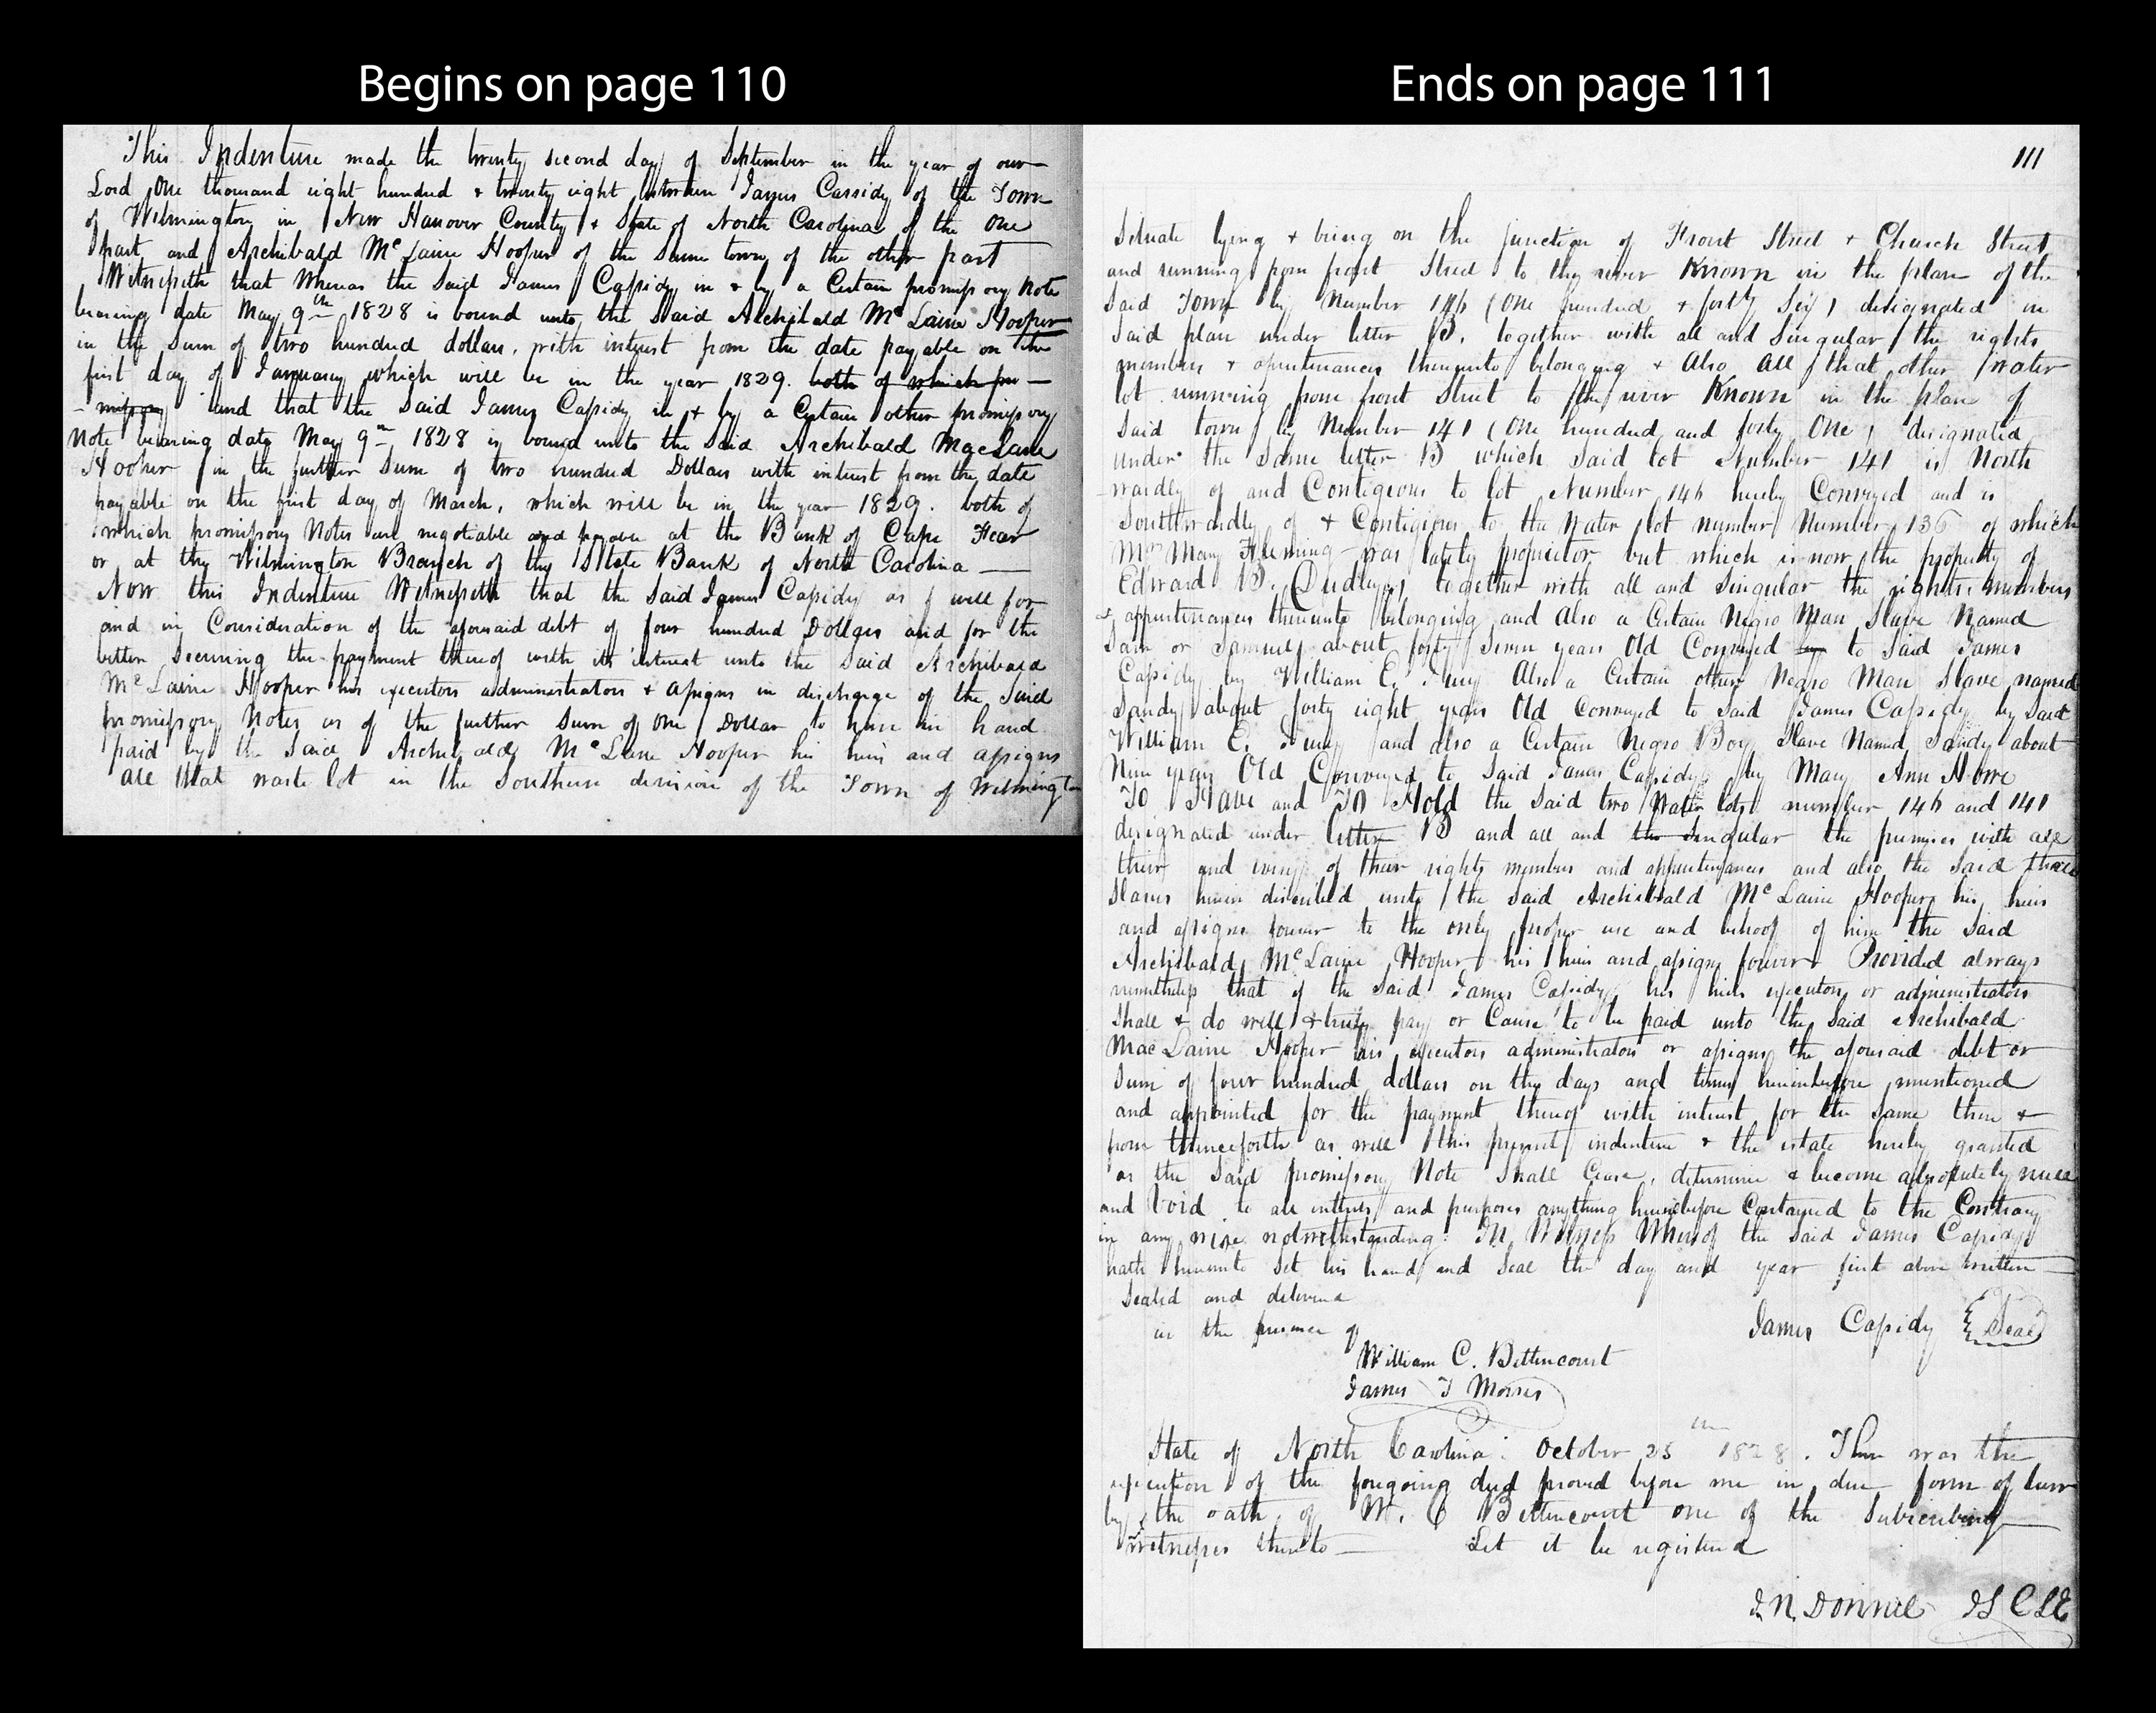 Begins on page 110
This Indenture made the twenty second day of September in the year of our
Lord One thousand eight hundred & twenty eight between James Cassidy of the Town
of Wilmington in New Hanover County & State of North Carolina of the One
part and Archibald Mc Laine Hooper of the same town of the other part
Witnesseth that Whereas the Said James Cassidy in & by a Certain promissory Note
bearing date May 9th 1828 is bound unto the Said Archibald Mc Laine Hooper
in the Sum of two hundred dollars, with interest from the date payable on the
first day of January which will be in the year 1829. both of which pro-
-missory and that the Said James Cassidy in & by a Certain other promissory
Note bearing date May 9th 1828 is bound unto the Said Archibald MacLaine
Hooper in the further Sum of two hundred Dollars with interest from the date
payable on the first day of March, which will be in the year 1829. both of
which promissory Notes are negotiable and payable at the Bank of Cape Fear
or at the Wilmington Branch of the State Bank of North Carolina —
Now this Indenture Witnesseth that the Said James Cassidy as well for
and in Consideration of the aforesaid debt of four hundred Dollars and for the
better Securing the payment thereof with its interest unto the Said Archibald
Mc Laine Hooper his executors administrators & assigns in discharge of the Said
promissory Notes as of the further Sum of One Dollar to him in hand
paid by the Said Archibald Mc Laine Hooper his heirs and assigns
all that waste lot in the Southern division of the Town of Wilmington
Ends on page 111
111
Situate lying & being on the junction of Front Street & Church Street
and running from front Street to the river Known in the plan of the
Said Town by Number 146 (One hundred & forty Six) designated in
Said plan under letter B. together with all and Singular the rights
members & apurtenances thereunto belonging & Also All that other water
lot running from front Street to the river Known in the plan of
Said town by Number 141 (One hundred and forty One) designated
under the Same letter B which Said lot Number 141 is North
-wardly of and Contigious to lot Number 146 hereby Conveyed and is
Southwardly of & Contigious to the Water lot number Number 136 of which
Mrs Mary Fleming was lately proprietor but which is now the property of
Edward B. Dudley, together with all and Singular the rights members
& appurtenances thereunto belonging and Also a Certain Negro Man Slave Named
Sam or Samuel about forty Seven years Old Conveyed to Said James
Cassidy by William E. Also a Certain other Negro Man Slave named
Sandy about forty eight years Old Conveyed to Said James Cassidy by Said
William E. and also a Certain Negro Boy Slave Named Sandy about
Nine years Old Conveyed to Said James Cassidy by Mary Ann Howe
To Have and To Hold the Said two Water lots number 146 and 141
designated under letter B and all and the Singular the premises with all
their and every of their rights members and appurtenances and also the Said three
Slaves herein described unto the Said Archibald Mc Laine Hooper his heirs
and assigns forever to the only proper use and behoof of him the Said
Archibald Mc Laine Hooper his heirs and assigns forever Provided always
nevertheless that if the Said James Cassidy his heirs executors or administrators
Shall & do well & truly pay or Cause to be paid unto the Said Archibald
Mac Laine Hooper his executors administrators or assigns the aforesaid debt or
Sum of four hundred dollars on the days and times hereinbefore mentioned
and appointed for the payment thereof with interest for the Same then &
from thenceforth as well this present indenture & the estate hereby granted
as the Said promissory Note Shall Cease, determine & become absolutely null
and Void to all intents and purposes anything hereinbefore Contained to the Contrary
in any wise notwithstanding. In Witness Whereof the Said James Cassidy
hath hereunto Set his hand and Seal the day and year first above written
Sealed and delivered
in the presence of
James Cassidy Seal
William C. Bettencourt
James T Morris
State of North Carolina: October 25th 1828. Then was the
execution of the foregoing deed proved before me in due form of law
by the oath of W. C Bettencourt one of the Subscribing
witnesses thereto — Let it be registered